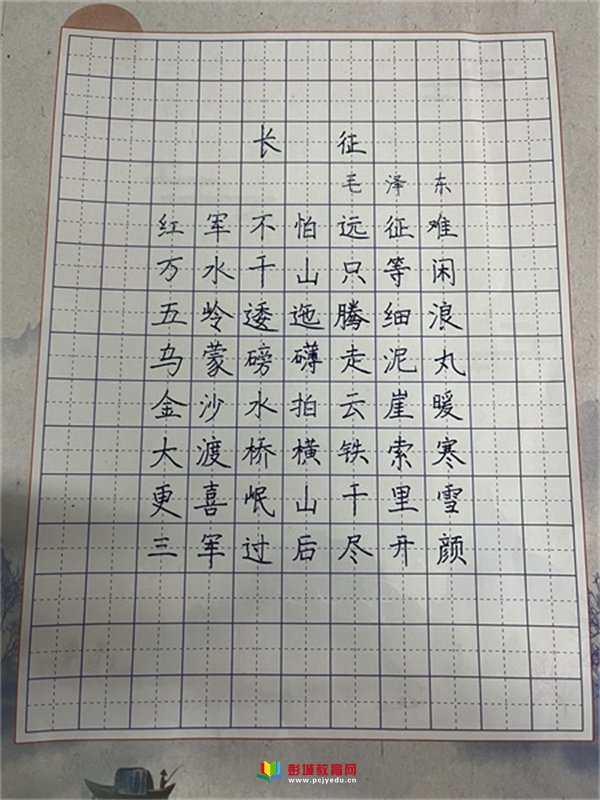 长征
毛泽东
红军不怕远征难
万水千山只等闲
五岭逶迤腾细浪
乌蒙磅礴走泥丸
金沙水拍云崖暖
大渡桥横铁索寒
更喜岷山千里雪
三军过后尽开颜
彭城教育网
www.pcjyedu.cn